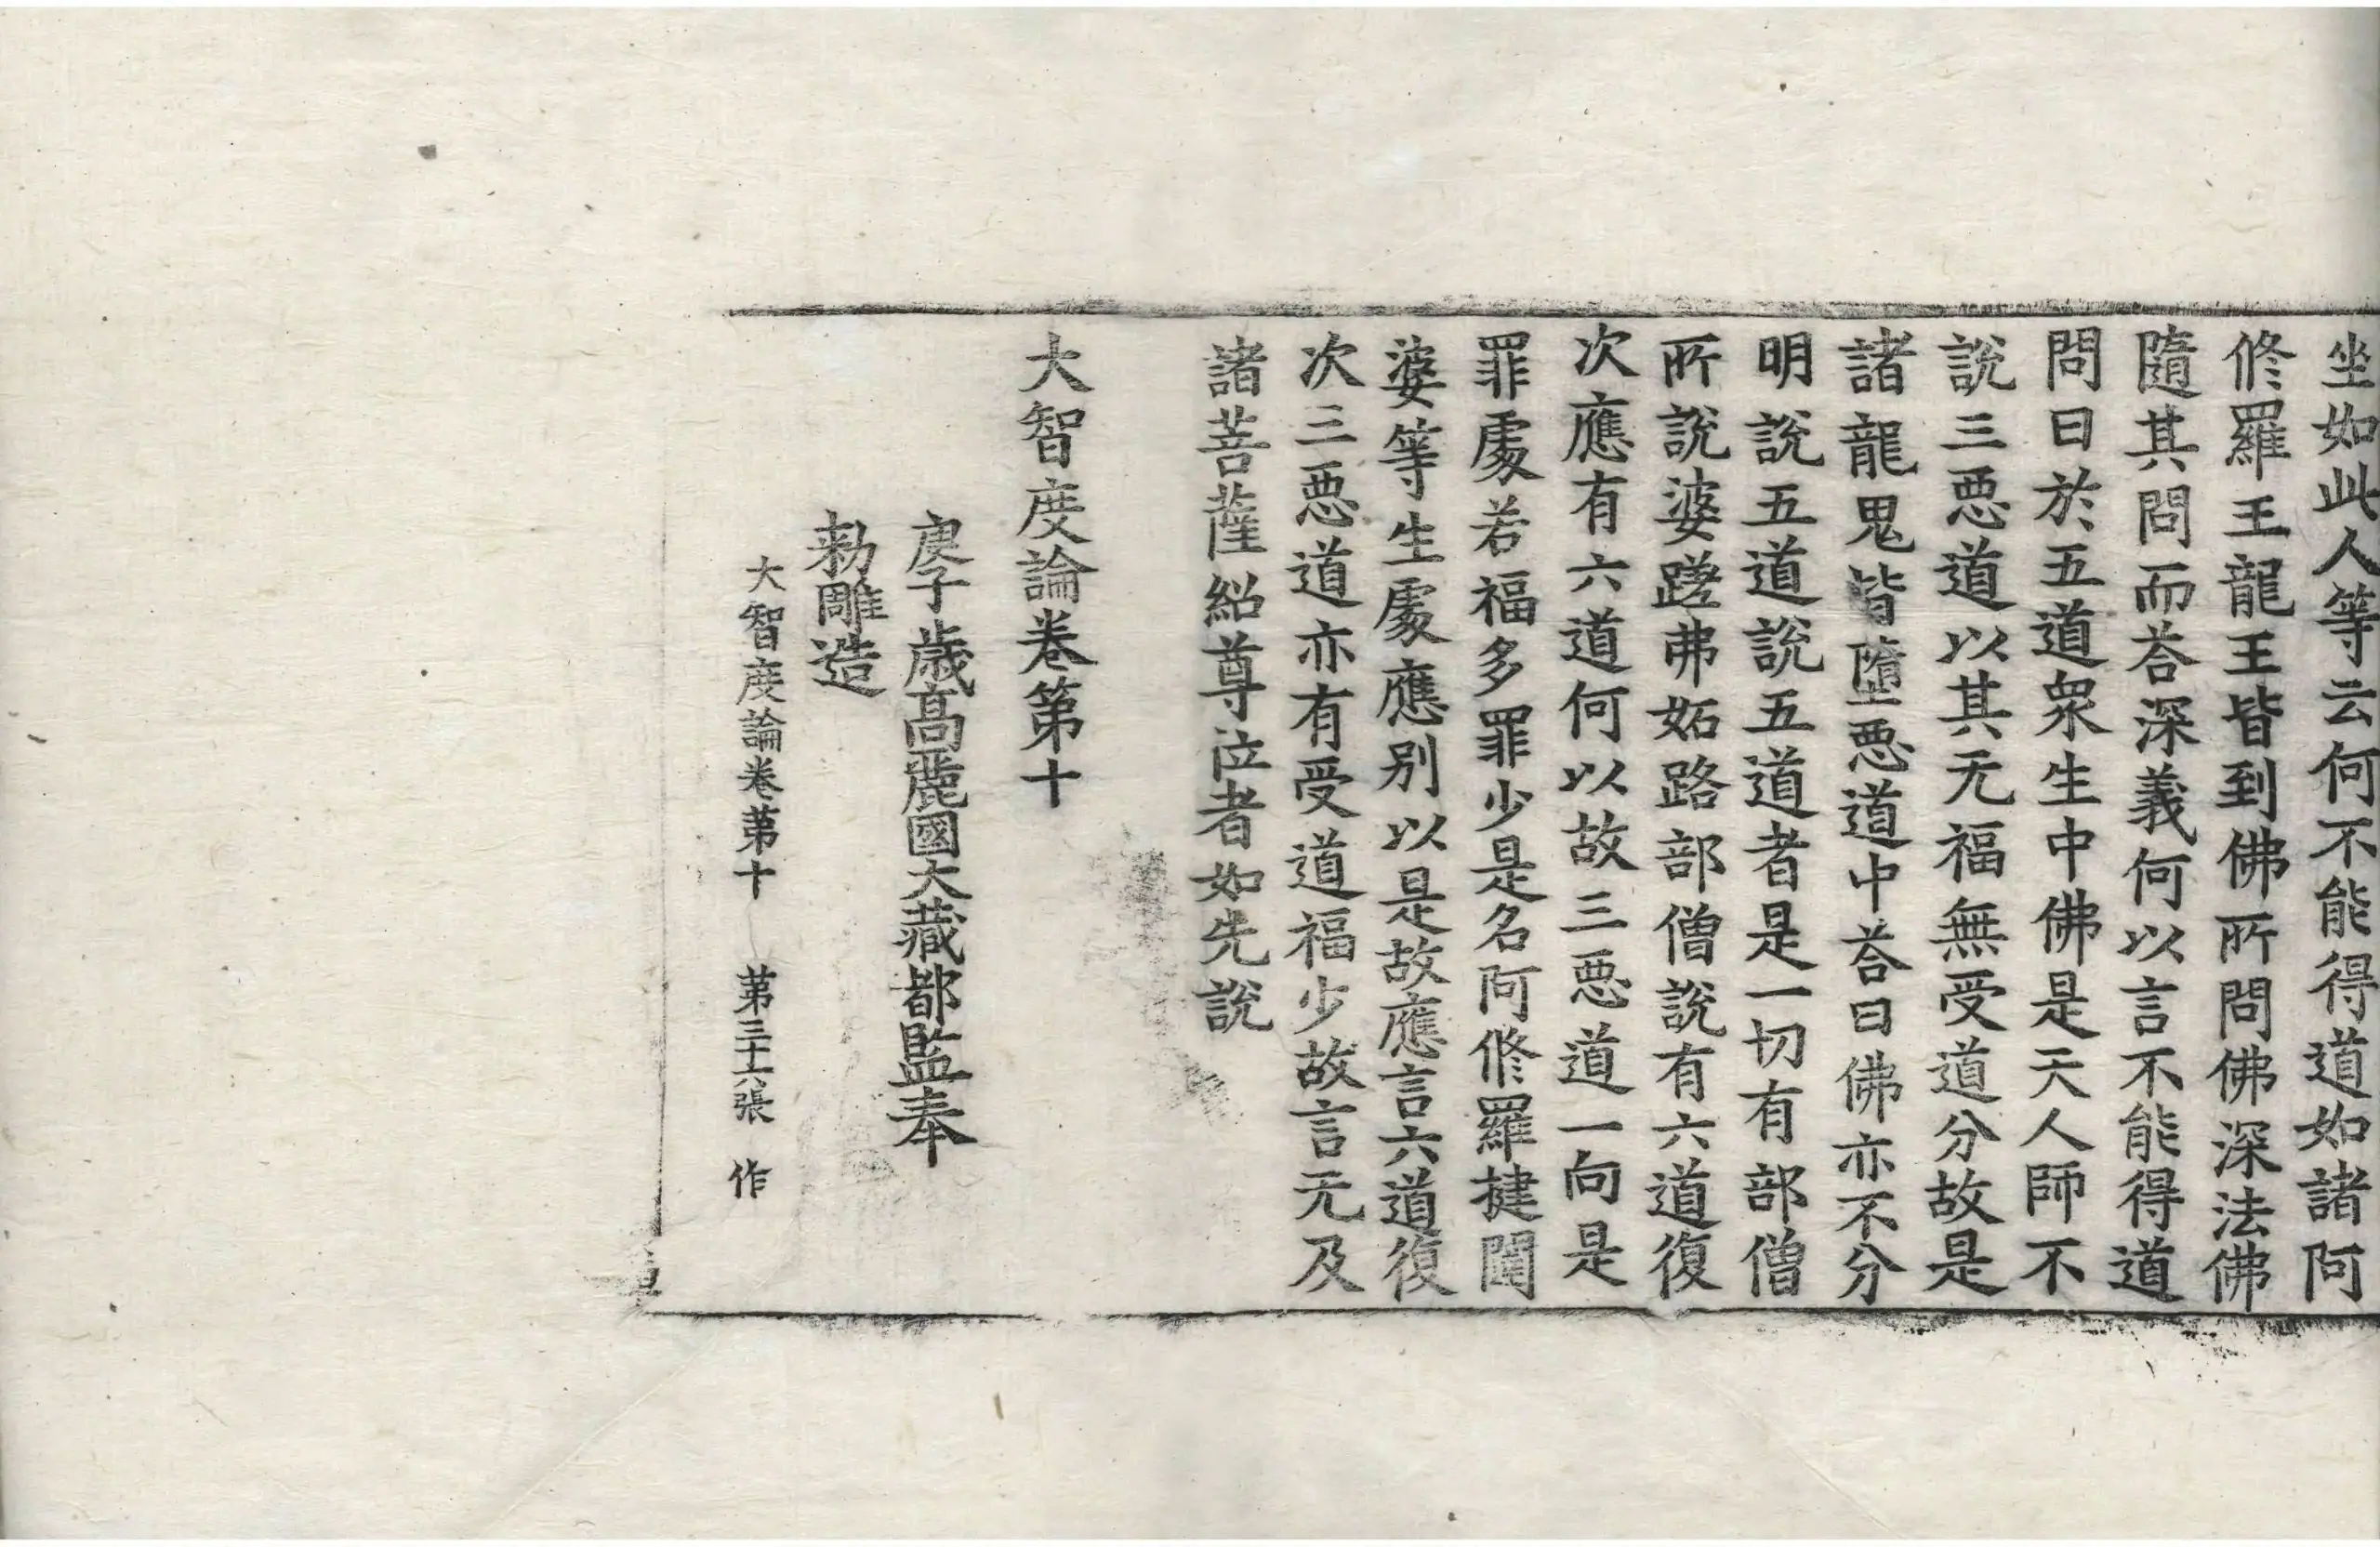 坐如此人等云何不能得道如諸阿
修羅王龍王皆到佛所問佛深法佛
隨其問而荅深義何以言不能得道
問曰於五道衆生中佛是天人師不
說三惡道以其无福無受道分故是
諸龍鬼皆墮惡道中荅曰佛亦不分
明說五道說五道者是一切有部僧
所說婆蹉弗妬路部僧說有六道復
次應有六道何以故三惡道一向是
罪處若福多罪少是名阿修羅揵闥
婆等生處應別以是故應言六道復
次三惡道亦有受道福少故言无及
諸菩薩紹尊位者如先說
大智度論卷第十
庚子歲高麗國大藏都監奉
勑雕造
大智度論卷苐十 苐三十六張 作